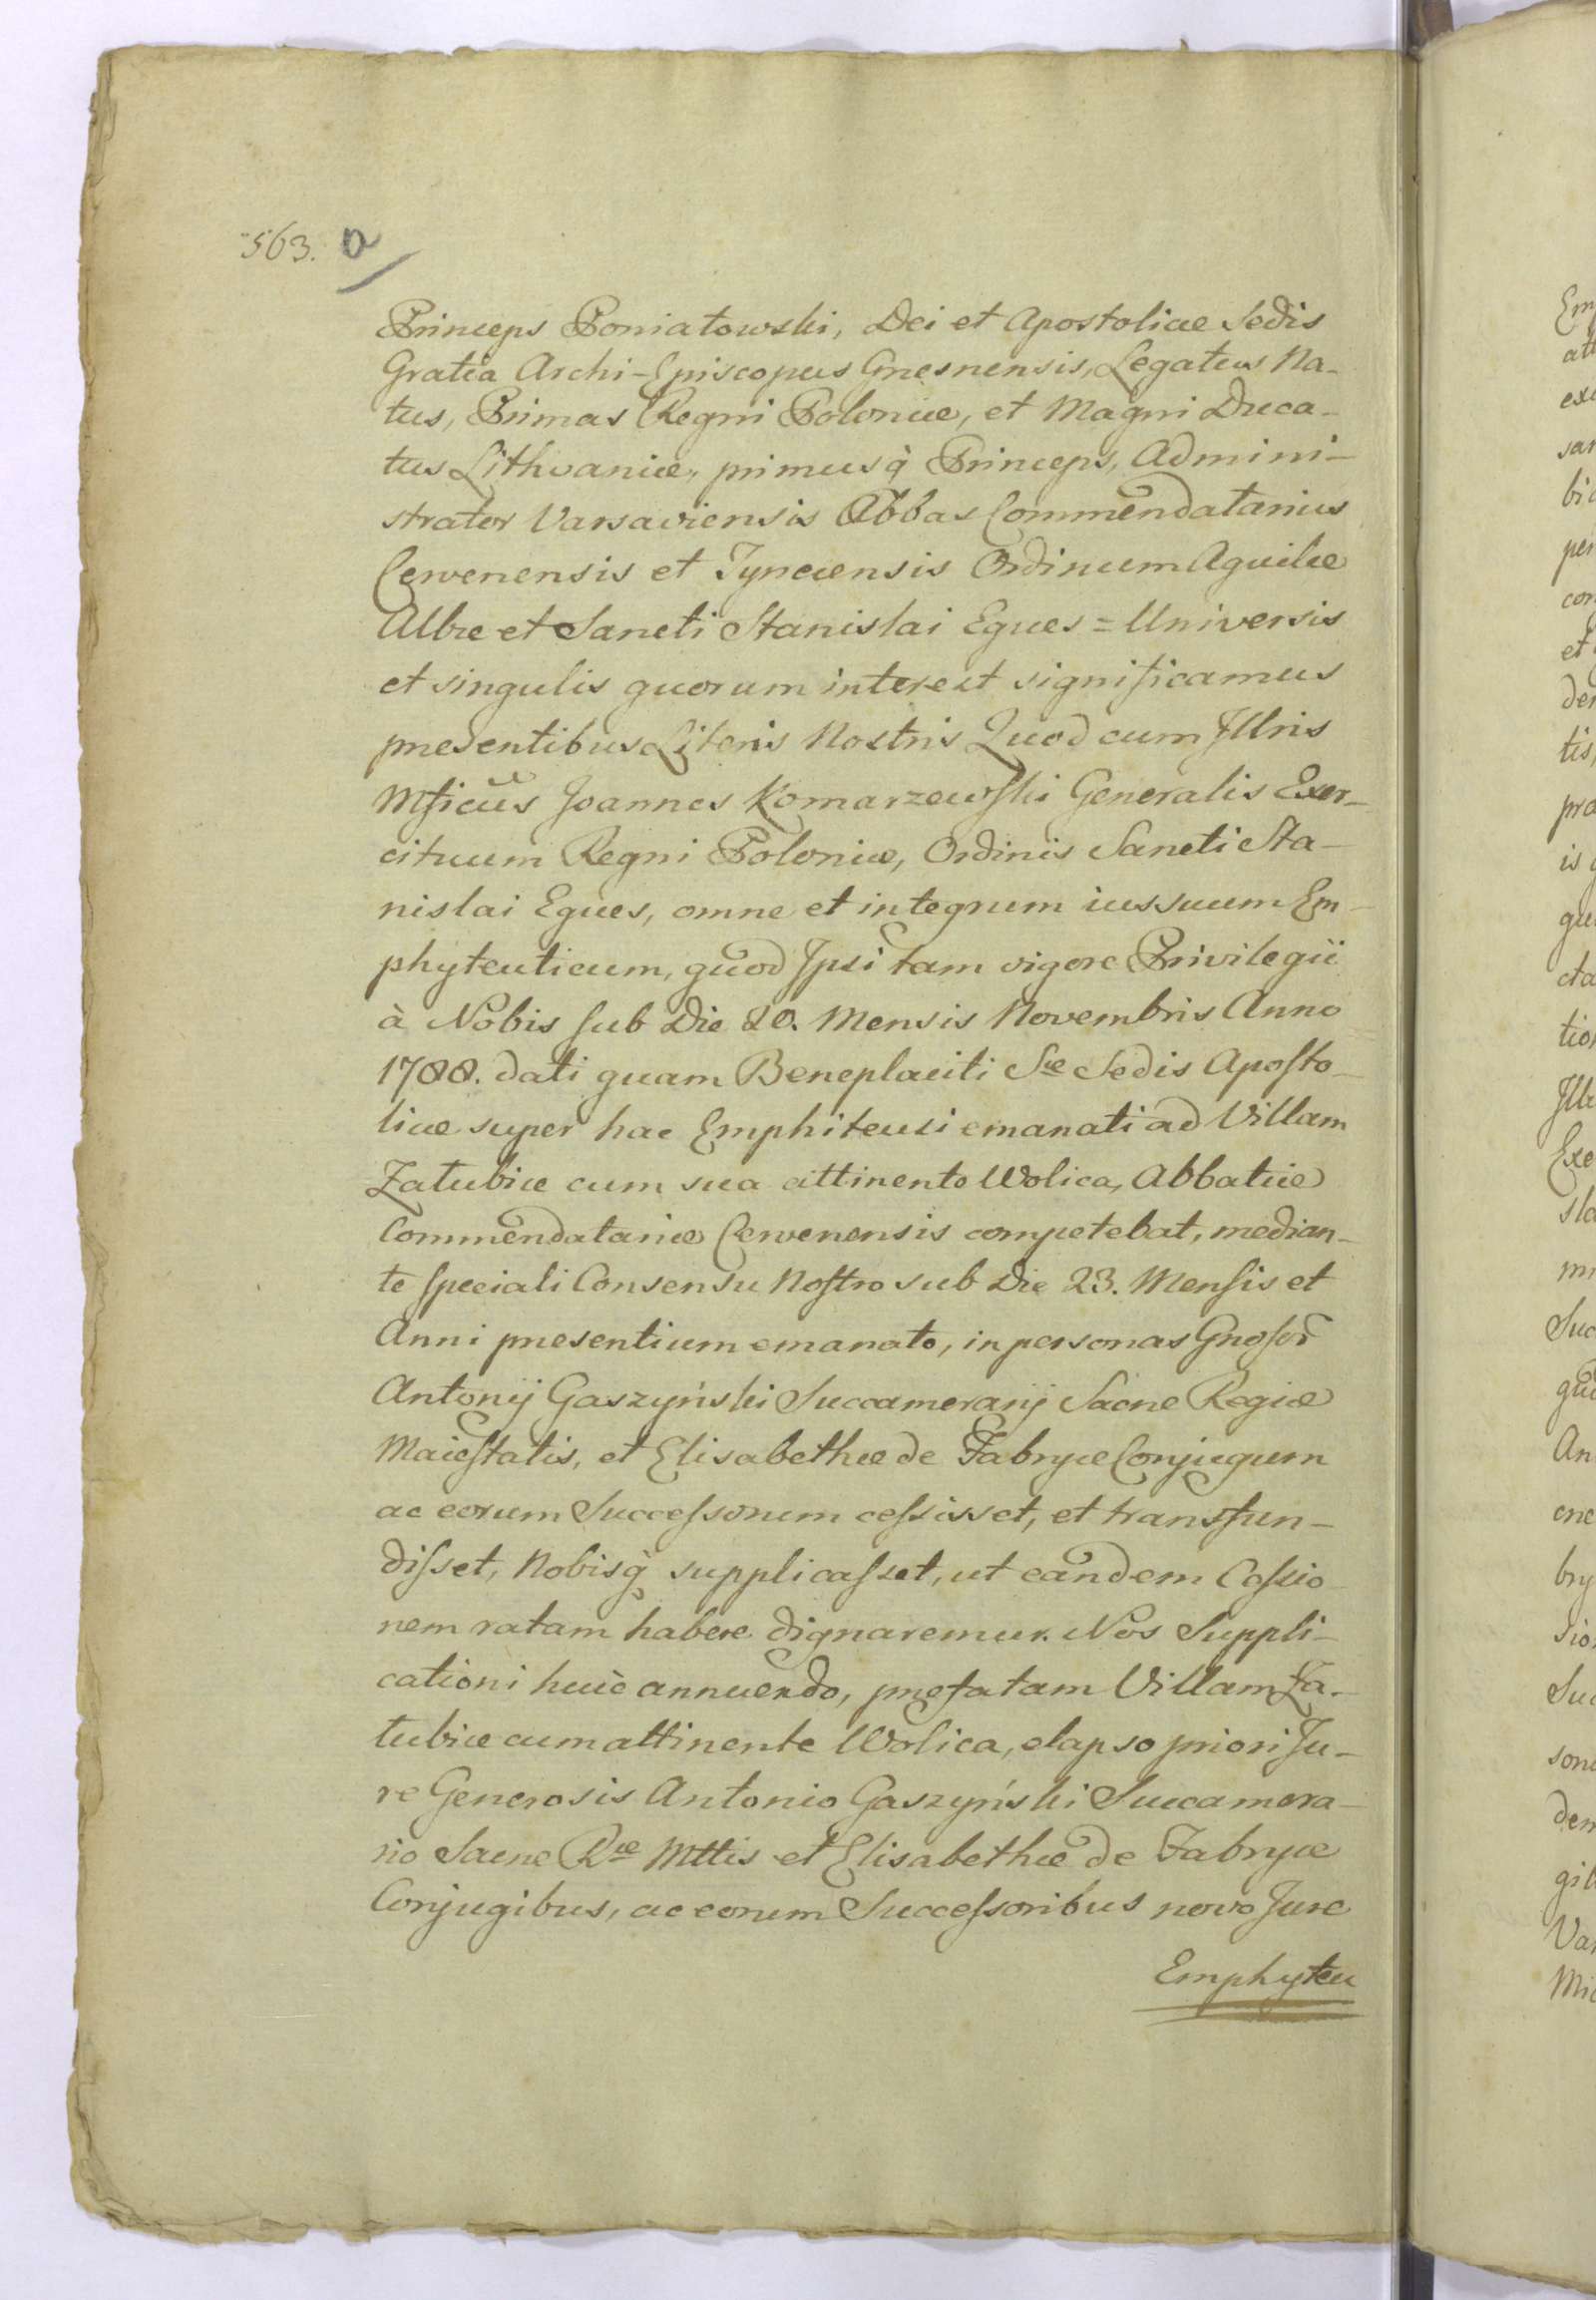 563. a
Princeps Poniatowski, Dei et Apostolicae Sedis
Gratia Archi-Episcopus Gnesnensis, Legatus Na-
tus, Primas Regni Poloniae, et Magni Duca-
tus Lithvaniae, primusq̀ Princeps, Admini-
strator Varsaviensis Abbas Commendatarius
Cervenensis et Tynecensis Ordinum Aquilae
Albae et Sancti Stanislai Eques = Universis
et singulis quorum interest significamus
praesentibus Literis Nostris Quod cum Illris
Mficus Joannes Komarzewski Generalis Exer-
cituum Regni Poloniae, Ordinis Sancti Sta-
nislai Eques, omne et integrum ius suum Em-
phyteuticum, quod Ipsi tam vigore Privilegii
à Nobis sub Die 20. Mensis Novembris Anno
1788. dati quam Beneplaciti Sae Sedis Aposto-
licae super hac Emphiteusi emanati ad Villam
Zatubice cum sua attinente Wolica, Abbatiae
Commendatariae Cervenensis competebat, median-
te speciali Consensu Nostro sub Die 23. Mensis et
Anni praesentium emanato, in personas Gnosor
Antonij Gaszyński Succamerarij Sacrae Regiae
Maiestatis, et Elisabethae de Fabryce Conjugum
ac eorum Successorum cessisset, et transfun-
disset, Nobisq̀ supplicasset, ut eandem Cessio
nem ratam habere dignaremur. Nos Suppli-
cationi huic annuendo, praefatam Villam Za-
tubice cum attinente Wolica, elapso priori Ju-
re Generosis Antonio Gaszyński Succamera-
rio Sacrae Rae Mttis et Elisabethae de Fabryce
Conjugibus, ac eorum Successoribus novo Jure
Emphyteu